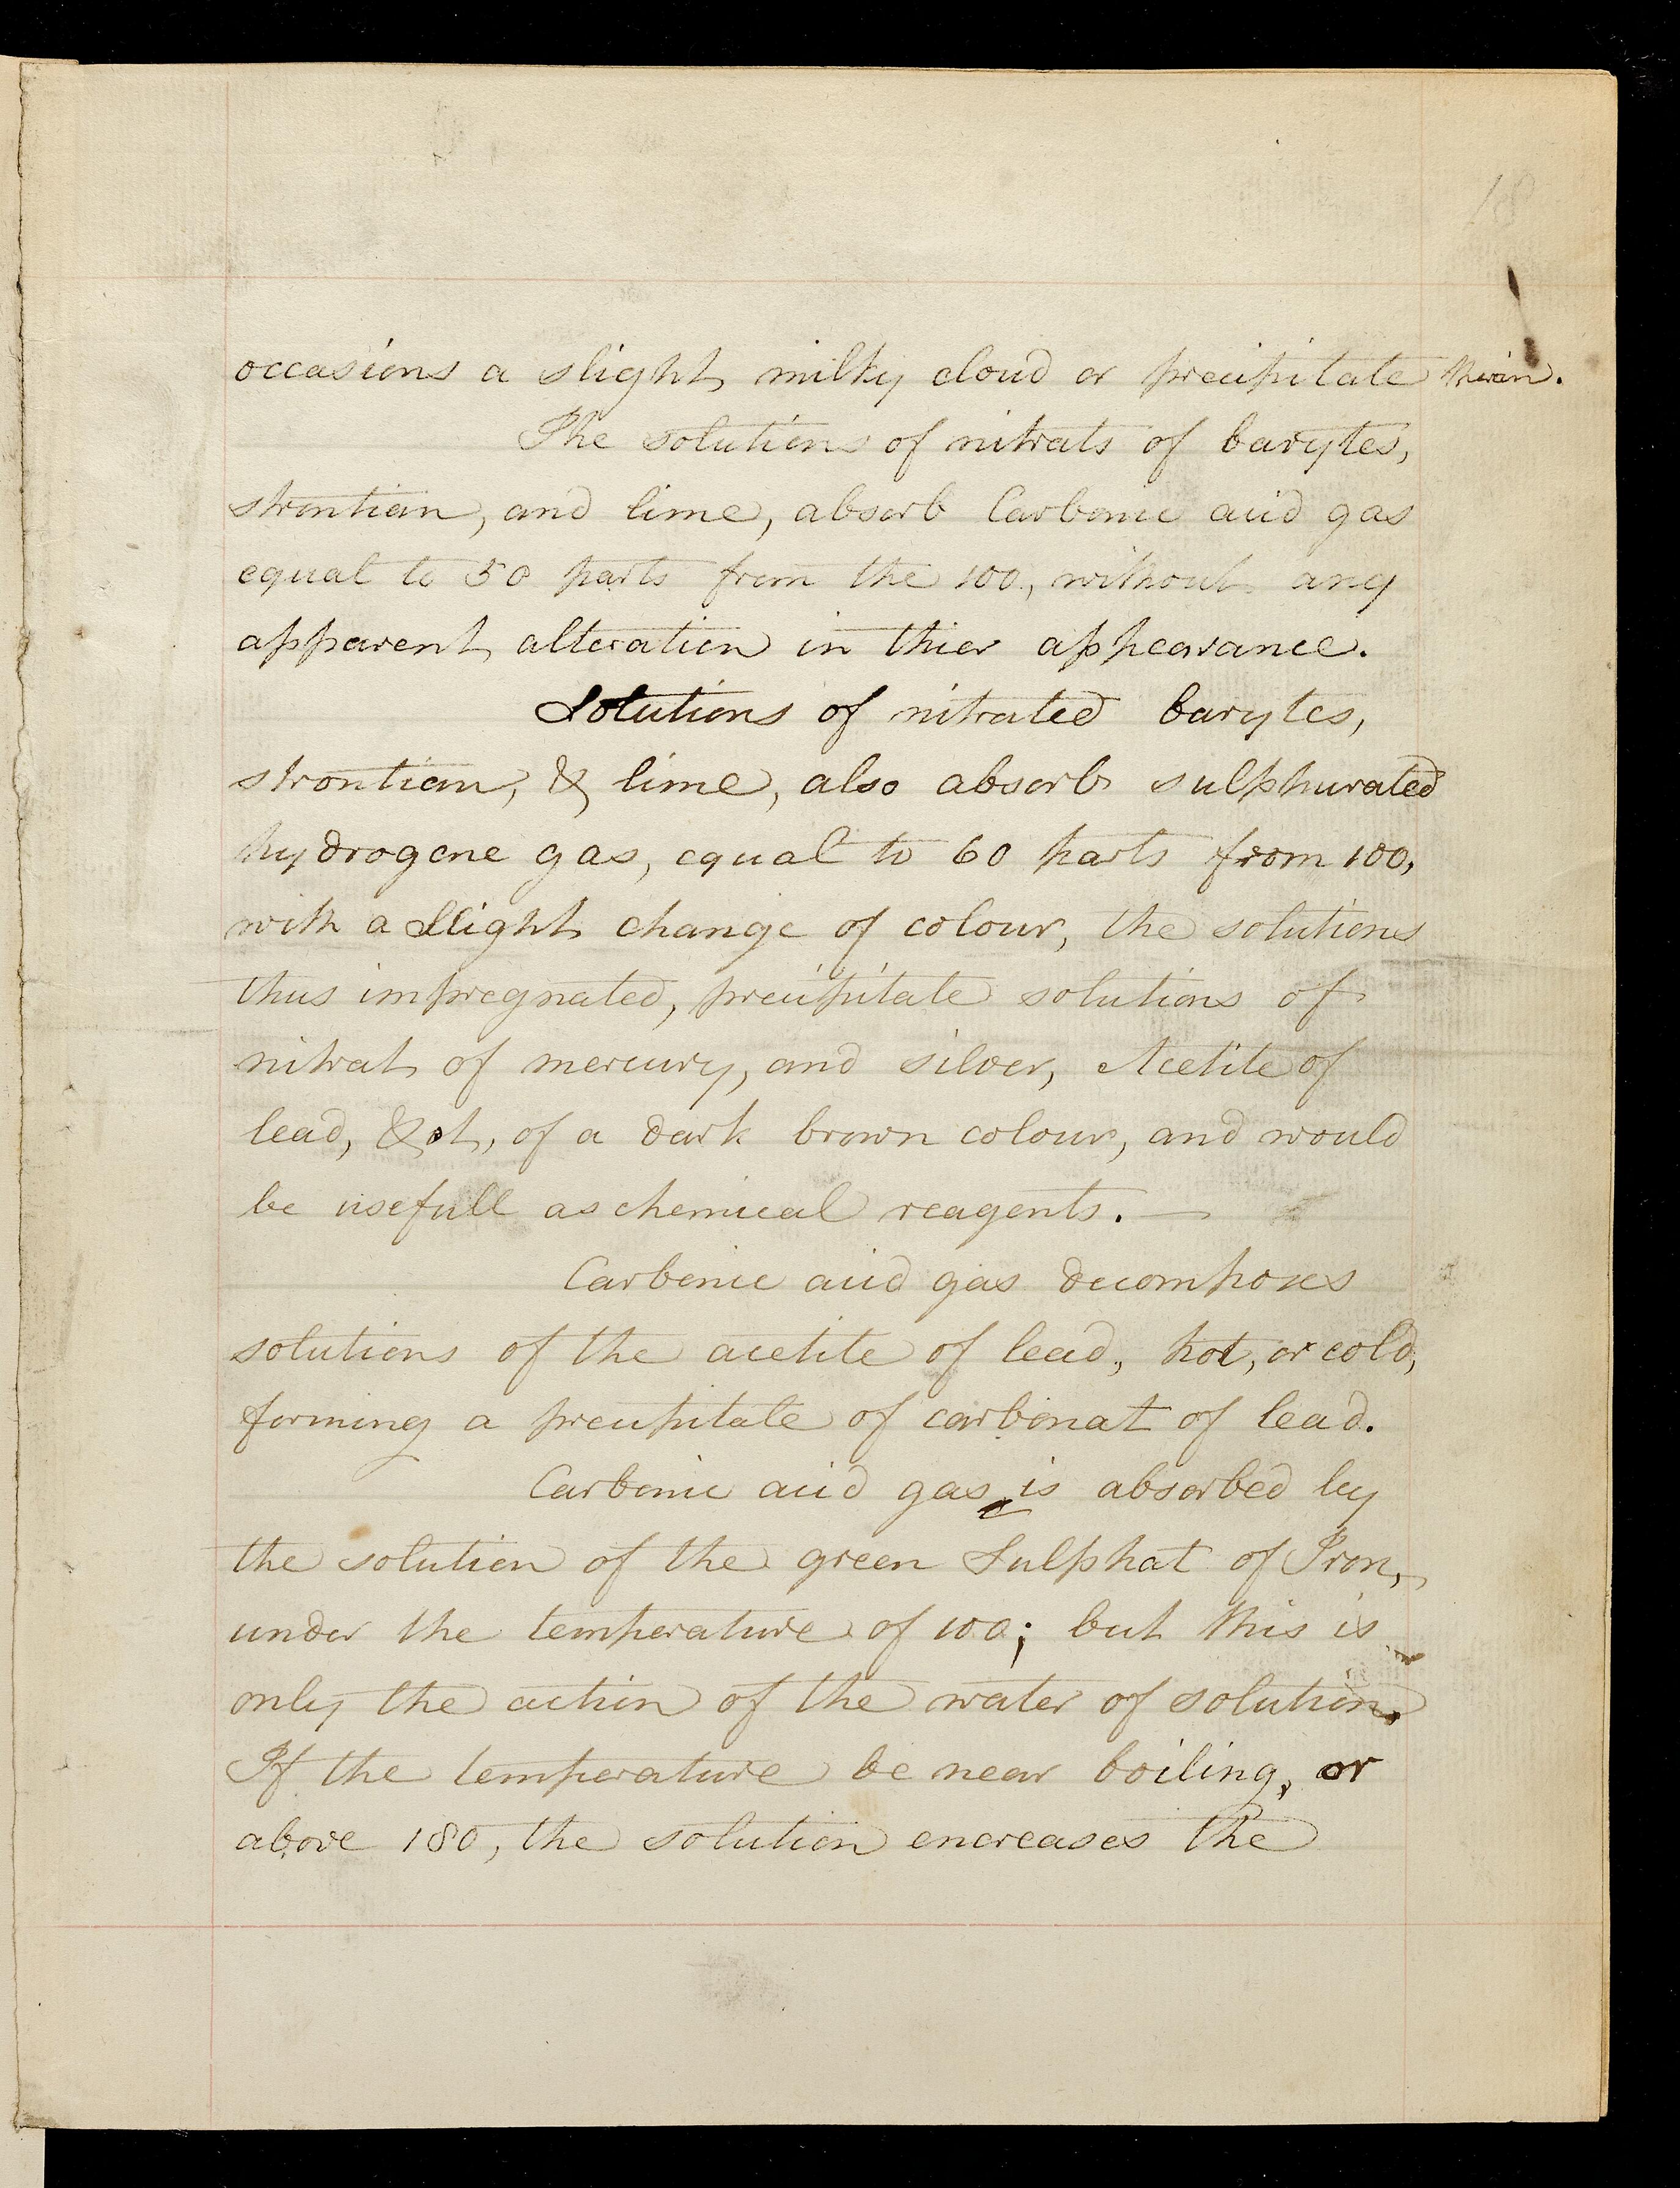 18
occasions a slight milky cloud or precipitate therin.
The solutions of nitrats of barytes,
strontian, and lime, absorb Carbonic acid gas
equal to 50 parts from the 100, without any
apparent alteration in thier appearance.
Solutions of nitrated barytes,
strontian, & lime, also absorb sulphurated
hydrogene gas, equal to 60 parts from 100,
with a slight change of colour, the solutions
thus impregnated, precipitate solutions of
nitrat of mercury, and silver, Acetite of
lead, &ct, of a dark brown colour, and would
be usefull as chemical reagents. —
Carbonic acid gas decomposes
solutions of the acetite of lead, hot, or cold,
forming a precipitate of carbonat of lead.
Carbonic acid gas is absorbed by
the solution of the green Sulphat of Iron,
under the temperature of 100; but this is
only the action of the water of solution.
If the temperature be near boiling, or
above 180, the solution encreases the